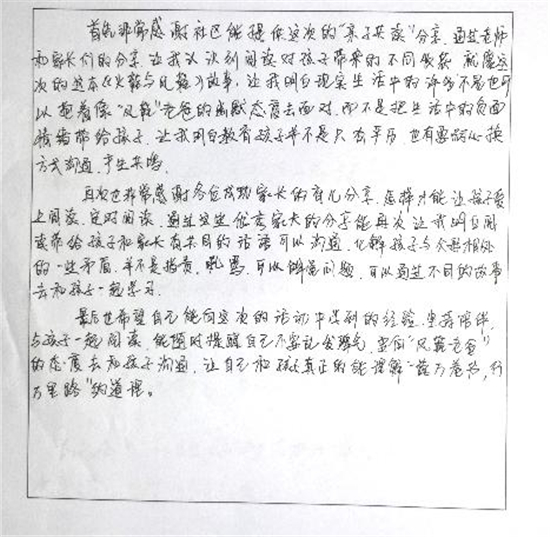 首先非常感谢社区能提供这次的“亲子共读”分享，通过老师
和家长们的分享，让我认识到阅读对孩子带来的不同成长，就像这
次的这本《火鞋与风鞋》故事，让我明白现实生活中的许多不足也可
以抱着像“风鞋”老爸的幽默态度去面对，而不是把生活中的负面
情绪带给孩子，让我明白教育孩子并不是只有平房，也有要
方式沟通，产生共鸣。
再次也非常感谢各位成功家长的育儿分享，怎样才能让孩子爱
上阅读，定时阅读，通过这些优秀家长的分享能再次让我明白阅
读带给孩子和家长有共同的话语可以沟通，化解孩子与父母相处
的一些矛盾，并不是指责，吼骂，可以解决问题，可以通过不同的故事
去和孩子一起学习。
最后也希望自己能向这次的活动中得到的经验，坚持陪伴，
与孩子一起阅读，能随时提醒自己不要乱发脾气，要向“风鞋老爸”
的态度去和孩子沟通，让自己和孩子真正的能理解“读万卷书，行
万里路”的道理。